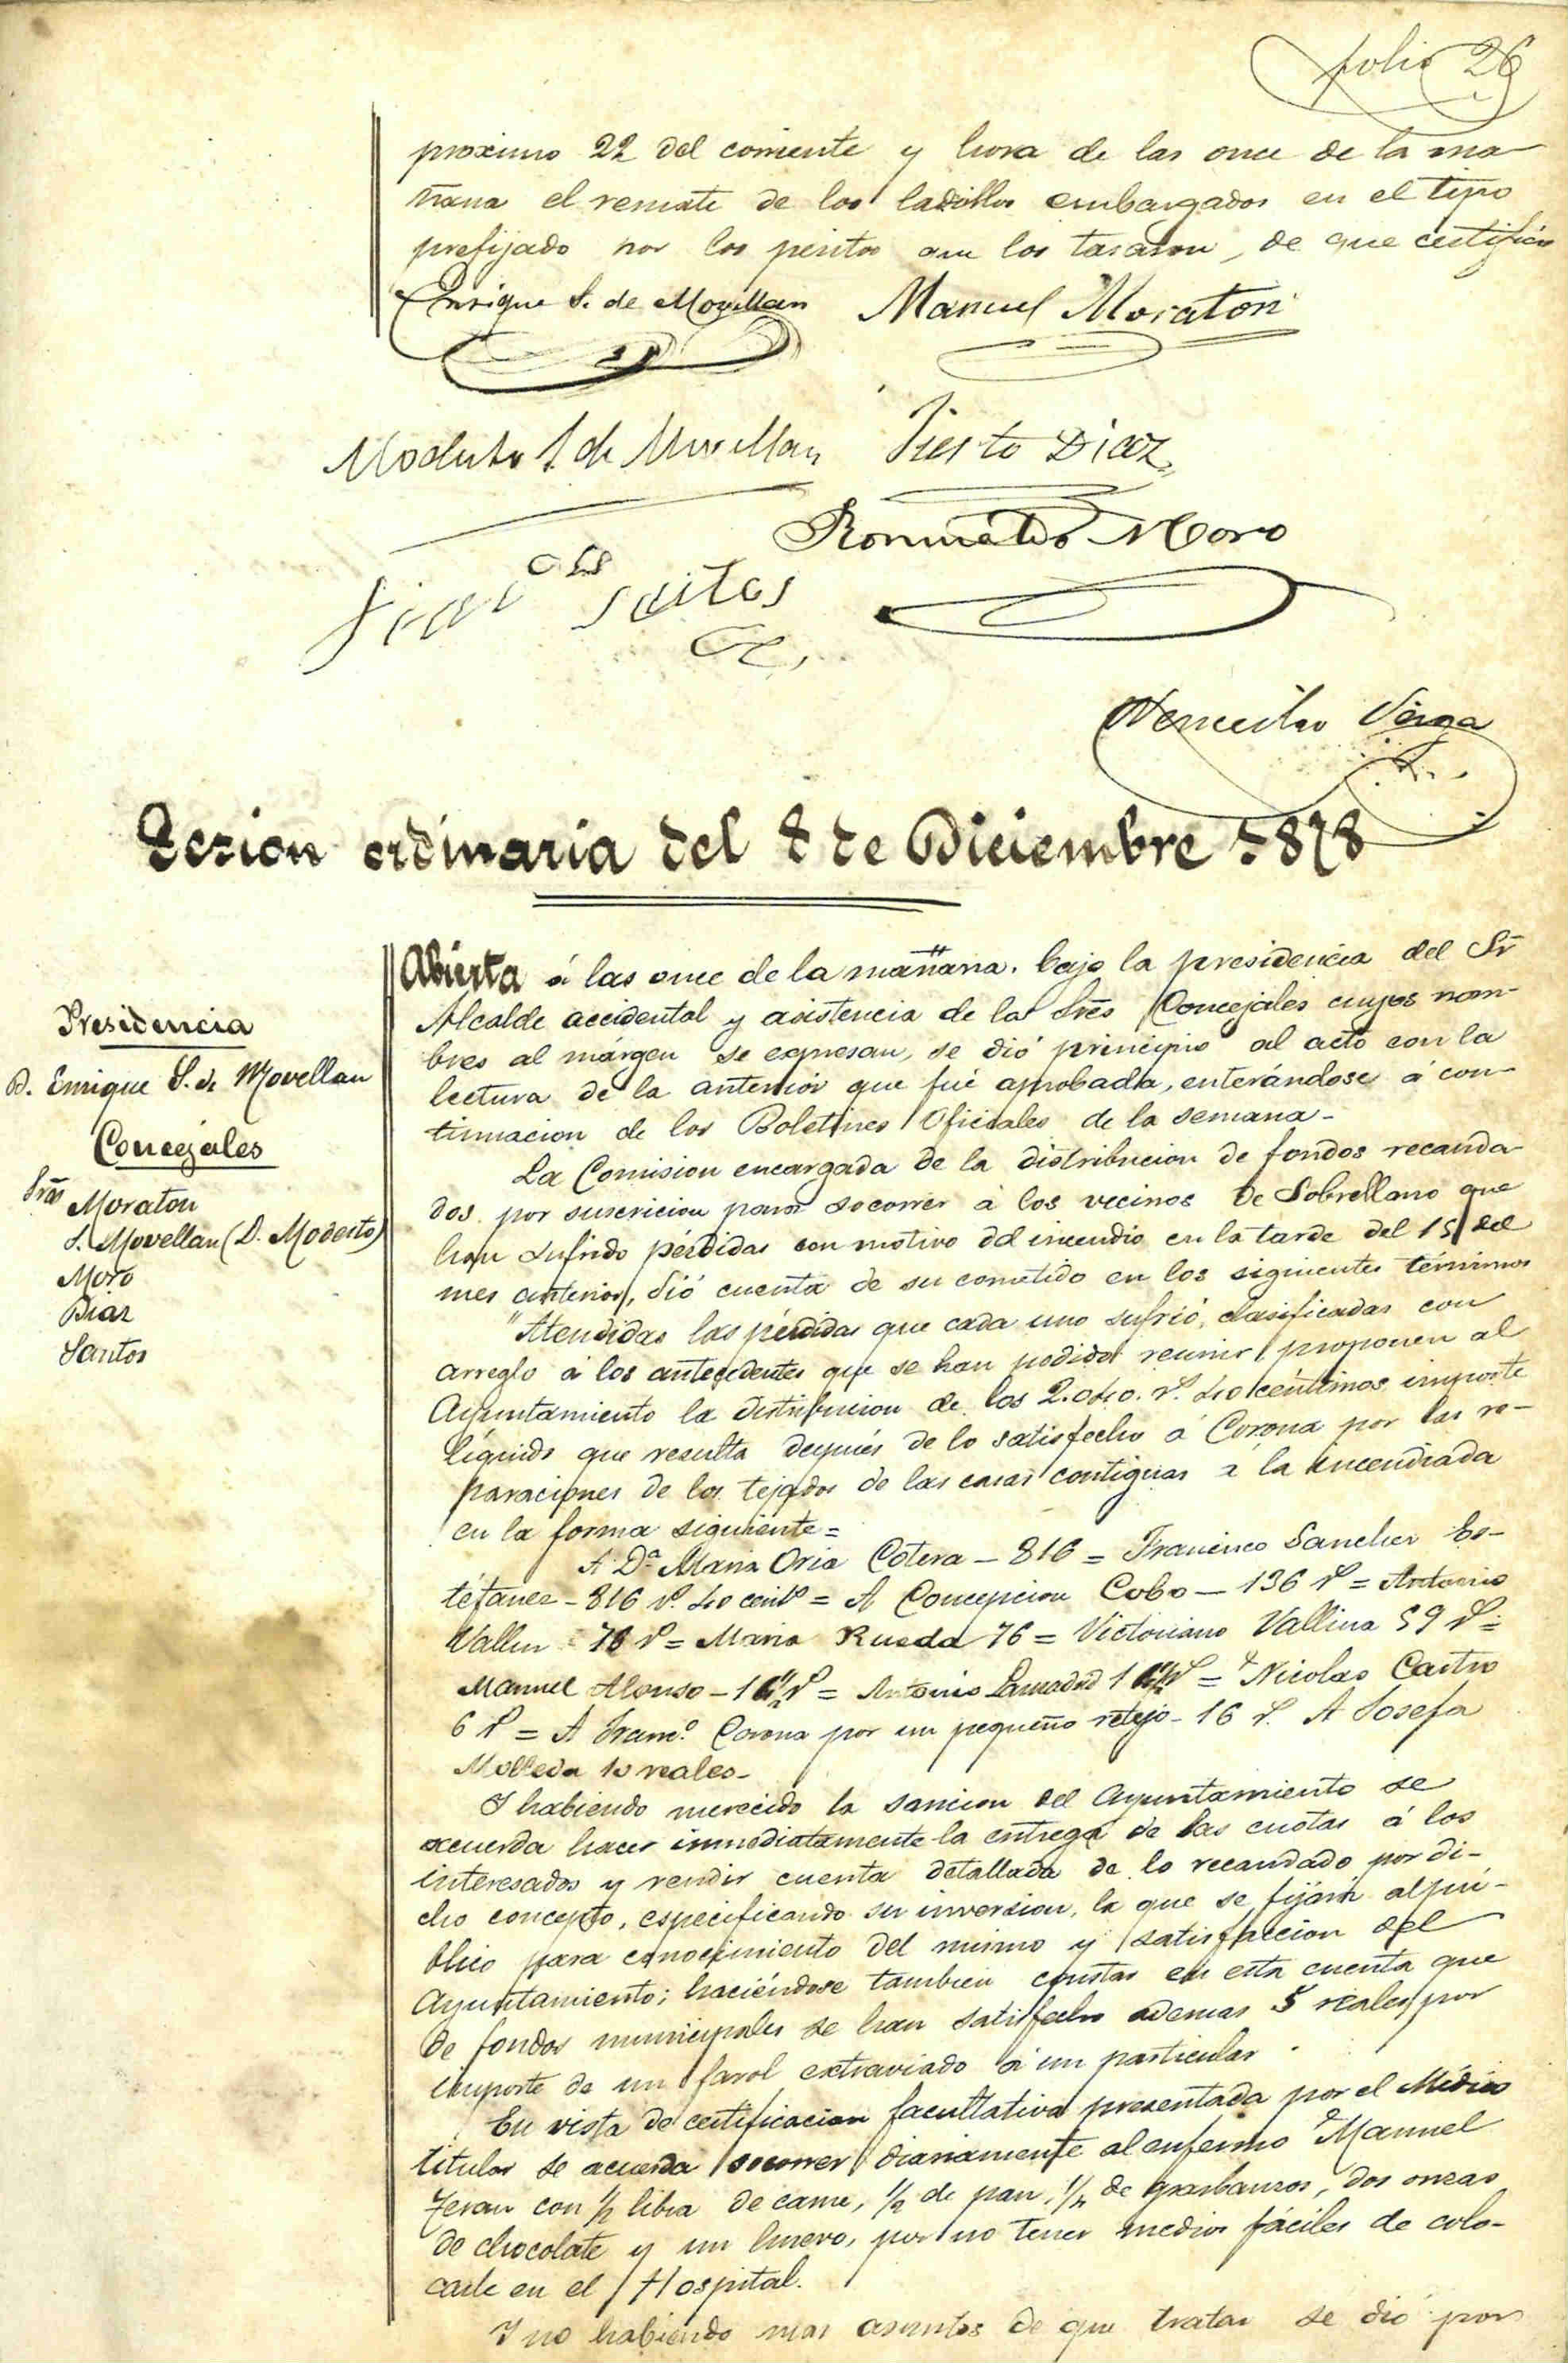 folio 26
proximo 22 del corriente y hora de las once de la ma-
ñana el remate de los ladrillos embargados en el tipo
prefijado por los peritos que los tasaron, de que certifico
Enrique S. de Movellan Manuel Moraton
Modesto S de Movellan Diaz
Romualdo Moro
Santos
Wenceslao
Sesion ordinaria del 8 de Diciembre 1878
Presidencia
D. Enrique S. de Movellan
Concejales
Srēs Moraton
S. Movellan (D. Modesto)
Moro
Diaz
Santos
Abierta á las once de la mañana. bajo la presidencia del Sr
Alcalde accidental y asistencia de los Srēs Concejales cuyos nom-
bres al márgen se expresan, se dió principio al acto con la
lectura de la anterior que fué aprobada, enterándose á con-
tinuacion de los Boletines Oficiales de la semana-
La Comision encargada de la distribucion de fondos recauda-
dos por suscricion para socorrer á los vecinos de Sobrellano que
han sufrido pérdidas con motivo del incendio en la tarde del 15 del
mes anterior, dió cuenta de su cometido en los siguientes términos
"Atendidas las pérdidas que cada uno sufrió, clasificadas con
arreglo á los antecedentes que se han podido reunir, proponen al
Ayuntamiento la distribucion de los 2.040. rˢ. 40 céntimos importe
líquido que resulta después de lo satisfecho á Corona por las re-
paraciones de los tejados de las casas contiguas á la incendiada
en la forma siguiente=
A Dª Maria Oria Cotera - 816 = Francisco Sanchez Es-
téfanez - 816 rˢ. 40 centˢ = A Concepcion Cobo - 136 rˢ = Antonio
Vallin 78 rˢ = Maria Rueda 76 = Victoriano Vallina 59 rˢ =
Manuel Alonso - 1 rˢ = Antonio Lamadrid 1 rˢ = Nicolas Castro
6 rˢ = A Franº. Corona por un pequeño retejo - 16 rˢ. A Josefa
Molleda 10 reales-
Y habiendo merecido la sancion del Ayuntamiento se
acuerda hacer inmediatamente la entrega de las cuotas á los
interesados y rendir cuenta detallada de lo recaudado por di-
cho concepto, especificando su inversion, la que se fijará al pú-
blico para conocimiento del mismo y satisfaccion del
Ayuntamiento; haciéndose tambien constar en esta cuenta que
de fondos municipales se han satisfecho ademas 5 reales por
importe de un farol extraviado á un particular.
En vista de certificacion facultativa presentada por el Médico
titular se acuerda socorrer diariamente al enfermo Manuel
Teran con ½ libra de carne, ½ de pan, ¼ de garbanzos, dos onzas
de chocolate y un huevo, por no tener medios fáciles de colo-
carle en el Hospital.
Y no habiendo mas asuntos de que tratar se dió por